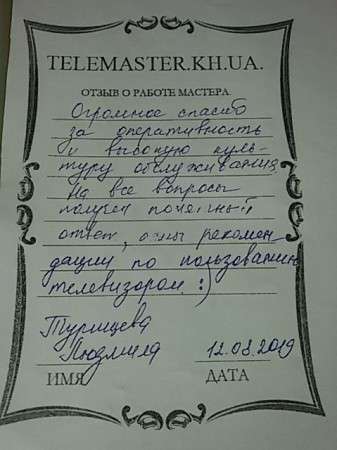 TELEMASTER.KH.UA.
ОТЗЫВ О РАБОТЕ МАСТЕРА
Огромное спасибо
за оперативность
и высокую куль-
туру обслуживания,
На все вопросы
получен полезный
ответ, даны рекомен-
дации по пользованию
телевизором :)
Турищева
Людмила 12.08.2019
ИМЯ ДАТА